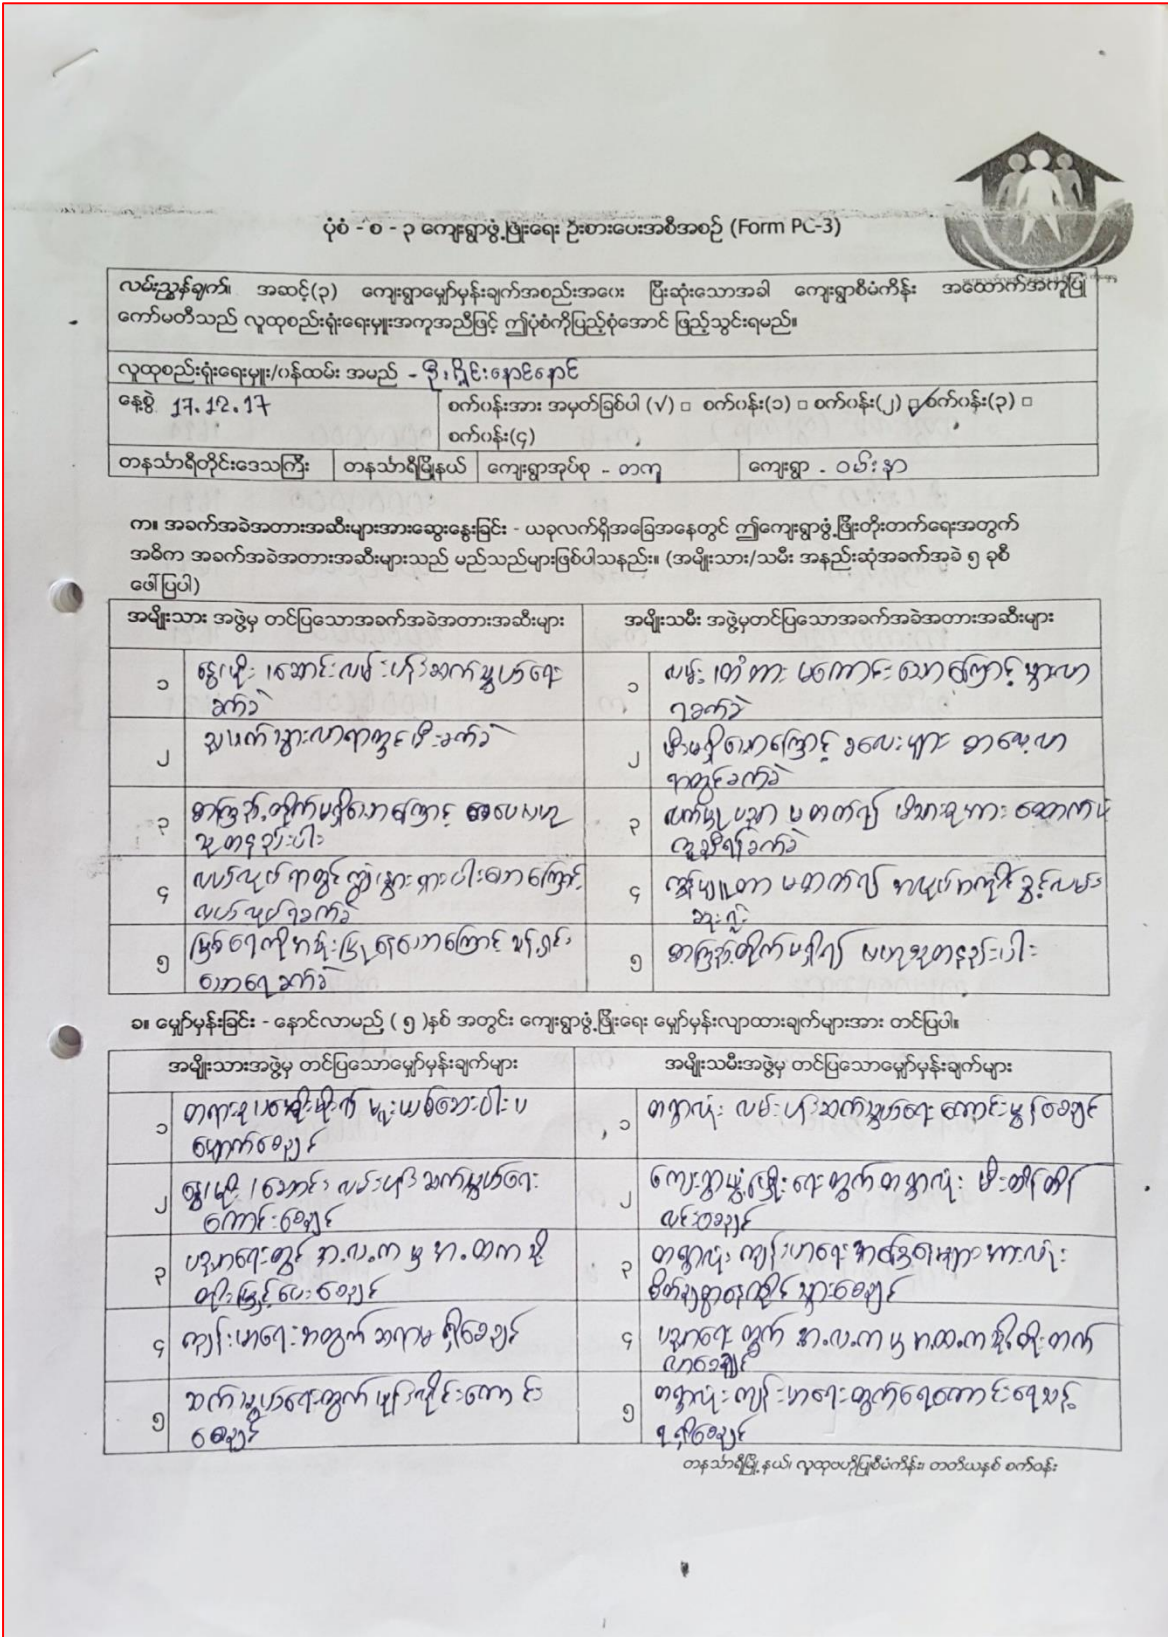 ပုံစံ - စ - ၃ ကျေးရွာဖွံ့ဖြိုးရေး ဦးစားပေးအစီအစဉ် (Form PC-3)
လမ်းညွှန်ချက်။ အဆင့်(၃) ကျေးရွာမျှော်မှန်းချက်အစည်းအဝေး ပြီးဆုံးသောအခါ ကျေးရွာစီမံကိန်း အထောက်အကူပြု
ကော်မတီသည် လူထုစည်းရုံးရေးမှူးအကူအညီဖြင့် ဤပုံစံကိုပြည့်စုံအောင် ဖြည့်သွင်းရမည်။
လူထုစည်းရုံးရေးမှူး/ဝန်ထမ်း အမည် - ဦးရှိုင်းနောင်နောင်
နေ့စွဲ 17.12.17
စက်ဝန်းအား အမှတ်ခြစ်ပါ (√) □ စက်ဝန်း(၁) □ စက်ဝန်း(၂) □ စက်ဝန်း(၃) □
စက်ဝန်း(၄)
တနင်္သာရီတိုင်းဒေသကြီး တနင်္သာရီမြို့နယ် ကျေးရွာအုပ်စု - တကူ ကျေးရွာ - ဝမ်းနာ
က။ အခက်အခဲအတားအဆီးများအားဆွေးနွေးခြင်း - ယခုလက်ရှိအခြေအနေတွင် ဤကျေးရွာဖွံ့ဖြိုးတိုးတက်ရေးအတွက်
အဓိက အခက်အခဲအတားအဆီးများသည် မည်သည်များဖြစ်ပါသနည်း။ (အမျိုးသား/သမီး အနည်းဆုံးအခက်အခဲ ၅ ခုစီ
ဖေါ်ပြပါ)
အမျိုးသား အဖွဲ့မှ တင်ပြသောအခက်အခဲအတားအဆီးများ
အမျိုးသမီး အဖွဲ့မှတင်ပြသောအခက်အခဲအတားအဆီးများ
၁ နွေ၊မိုး၊ဆောင်းလမ်းပန်းဆက်သွယ်ရေး
ခက်ခဲ
၁ လမ်း၊တံတား မကောင်းသောကြောင့် သွားလာ
ရခက်ခဲ
၂ ညဖက်သွားလာရာတွင်မီးခက်ခဲ
၂ မီးမရှိသောကြောင့် ခလေးများ စာလေ့လာ
ရာတွင်ခက်ခဲ
၃ စာကြည့်တိုက်မရှိသောကြောင့် ဗဟု
သုတနည်းပါး
၃ လက်မှုပညာ မတတ်၍ မိသားစုအား ထောက်ပံ့
ကူညီရန်ခက်ခဲ
၄ လယ်လုပ်ရာတွင်ကျွဲ၊နွားရှားပါးသောကြောင့်
လယ်လုပ်ရခက်ခဲ
၄ ကွန်ပျူတာ မတတ်၍ အလုပ်အကိုင်အခွင့်လမ်း
ဆုံးရှုံး
၅ မြစ်ရေကိုအသုံးပြုနေသောကြောင့် သန့်ရှင်း
သောရေခက်ခဲ
၅ စာကြည့်တိုက်မရှိ၍ ဗဟုသုတနည်းပါး
ခ။ မျှော်မှန်းခြင်း - နောင်လာမည့် ( ၅ )နှစ် အတွင်း ကျေးရွာဖွံ့ဖြိုးရေး မျှော်မှန်းလျာထားချက်များအား တင်ပြပါ။
အမျိုးသားအဖွဲ့မှ တင်ပြသောမျှော်မှန်းချက်များ
အမျိုးသမီးအဖွဲ့မှ တင်ပြသောမျှော်မှန်းချက်များ
၁ မူးယစ်ဆေးဝါးပ
ပျောက်စေချင်
၁ တရွာလုံး လမ်းပန်းဆက်သွယ်ရေး ကောင်းမွန်စေချင်
၂ နွေ၊မိုး၊ဆောင်း လမ်းပန်းဆက်သွယ်ရေး
ကောင်းစေချင်
၂ ကျေးရွာဖွံ့ဖြိုးရေးတွက်တရွာလုံး မီးထိန်ထိန်
လင်းစေချင်
၃ ပညာရေးတွင် အ.လ.က မှ အ.ထ.က သို့
တိုးမြှင့်ပေးစေချင်
၃ တရွာလုံး ကျန်းမာရေး အားလုံး
စိတ်ချစွာနေထိုင်သွားစေချင်
၄ ကျန်းမာရေးအတွက် ဆရာမ ရှိစေချင်
၄ ပညာရေးတွက် အ.လ.က မှ အ.ထ.က သို့ တိုးတက်
လာစေချင်
၅ ဆက်သွယ်ရေးတွက် ဖုန်းလိုင်းကောင်း
စေချင်
၅ တရွာလုံးကျန်းမာရေးတွက်ရေကောင်းရေသန့်
ရရှိစေချင်
တနင်္သာရီမြို့နယ်၊ လူထုဗဟိုပြုစီမံကိန်း၊ တတိယနှစ် စက်ဝန်း